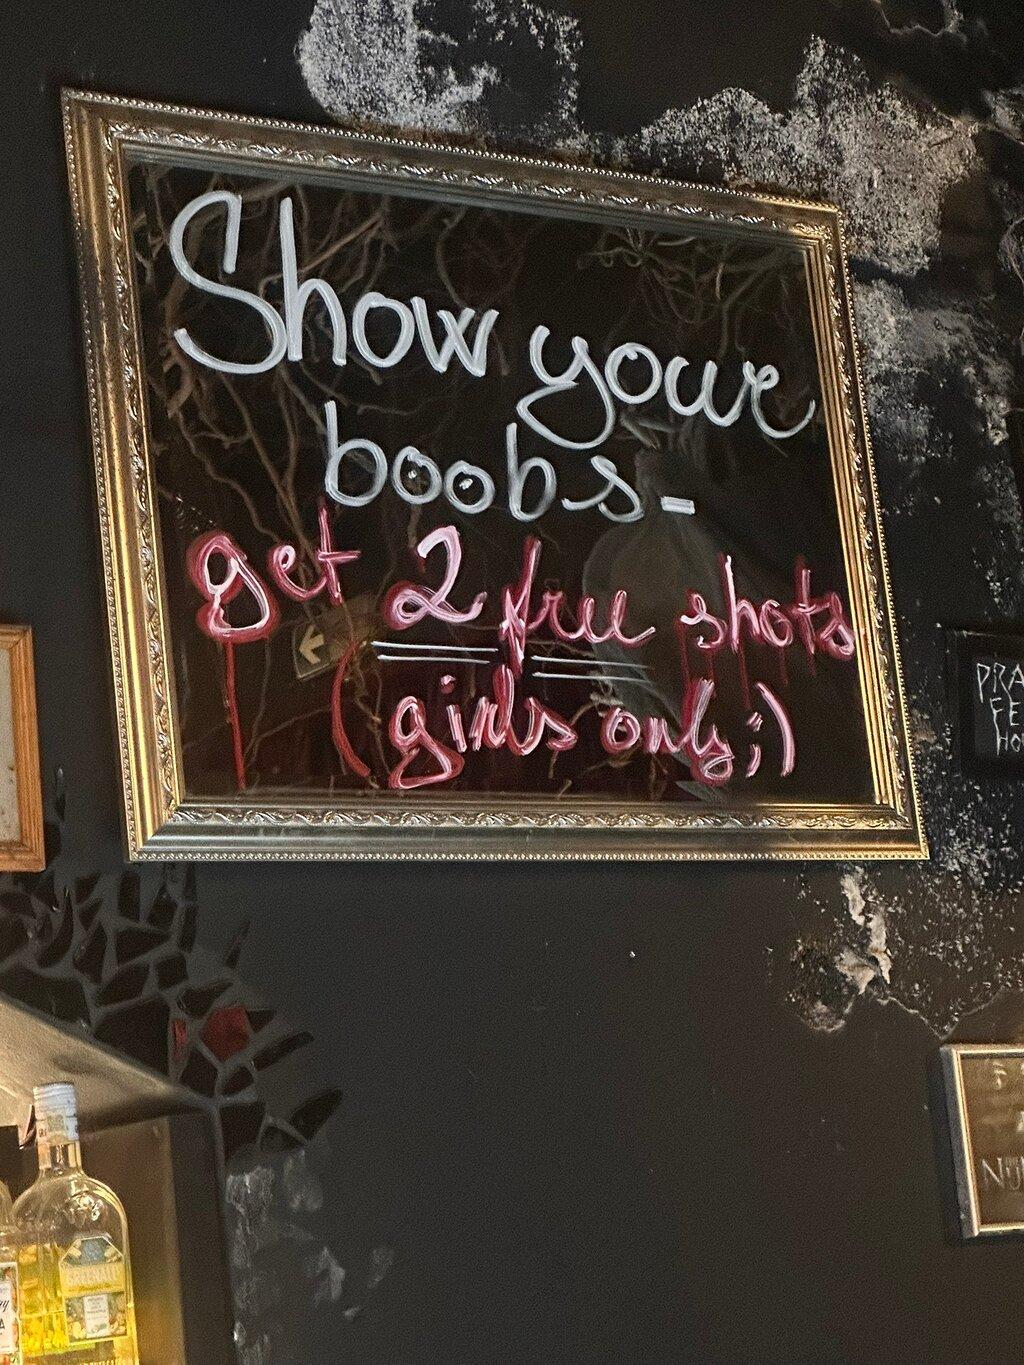 Show your
boobs-
get 2 free shots
(girls only;)
PRA
FE
HO